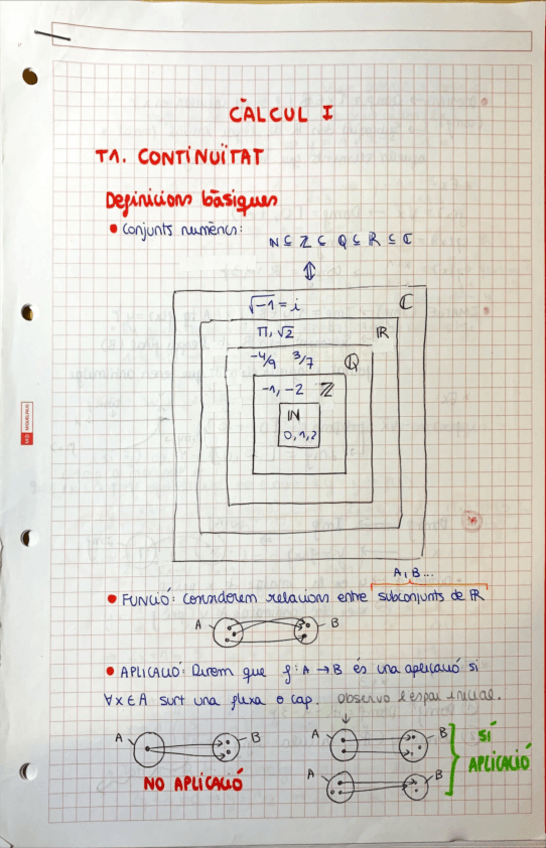 CÀLCUL I
T1. CONTINUÏTAT
Definicions bàsiques
• Conjunts numèrics:
ℕ ⊆ ℤ ⊆ ℚ ⊆ ℝ ⊆ ℂ
⇕
√-1 = i ℂ
π, √2 ℝ
-4/9 3/7 ℚ
-1, -2 ℤ
ℕ
0,1,2
MIQUELRIUS
A, B...
• FUNCIÓ: considerem relacions entre subconjunts de ℝ
A B
• APLICACIÓ: Direm que f: A → B és una aplicació si
∀x ∈ A surt una fletxa o cap. Observo l'espai inicial.
A B A B SÍ
APLICACIÓ
NO APLICACIÓ A B